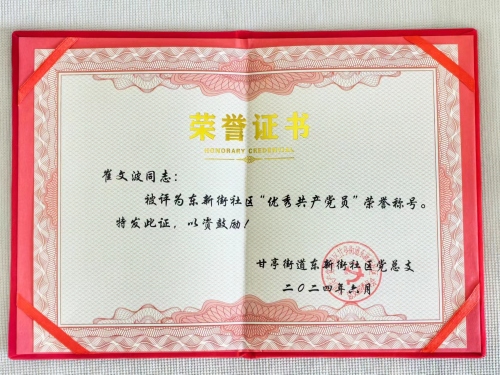 荣誉证书
HONORARY CREDENTIAL
崔文波同志：
被评为东新街社区“优秀共产党员”荣誉称号。
特发此证，以资鼓励！
甘亭街道东新街社区党总支
二〇二四年六月